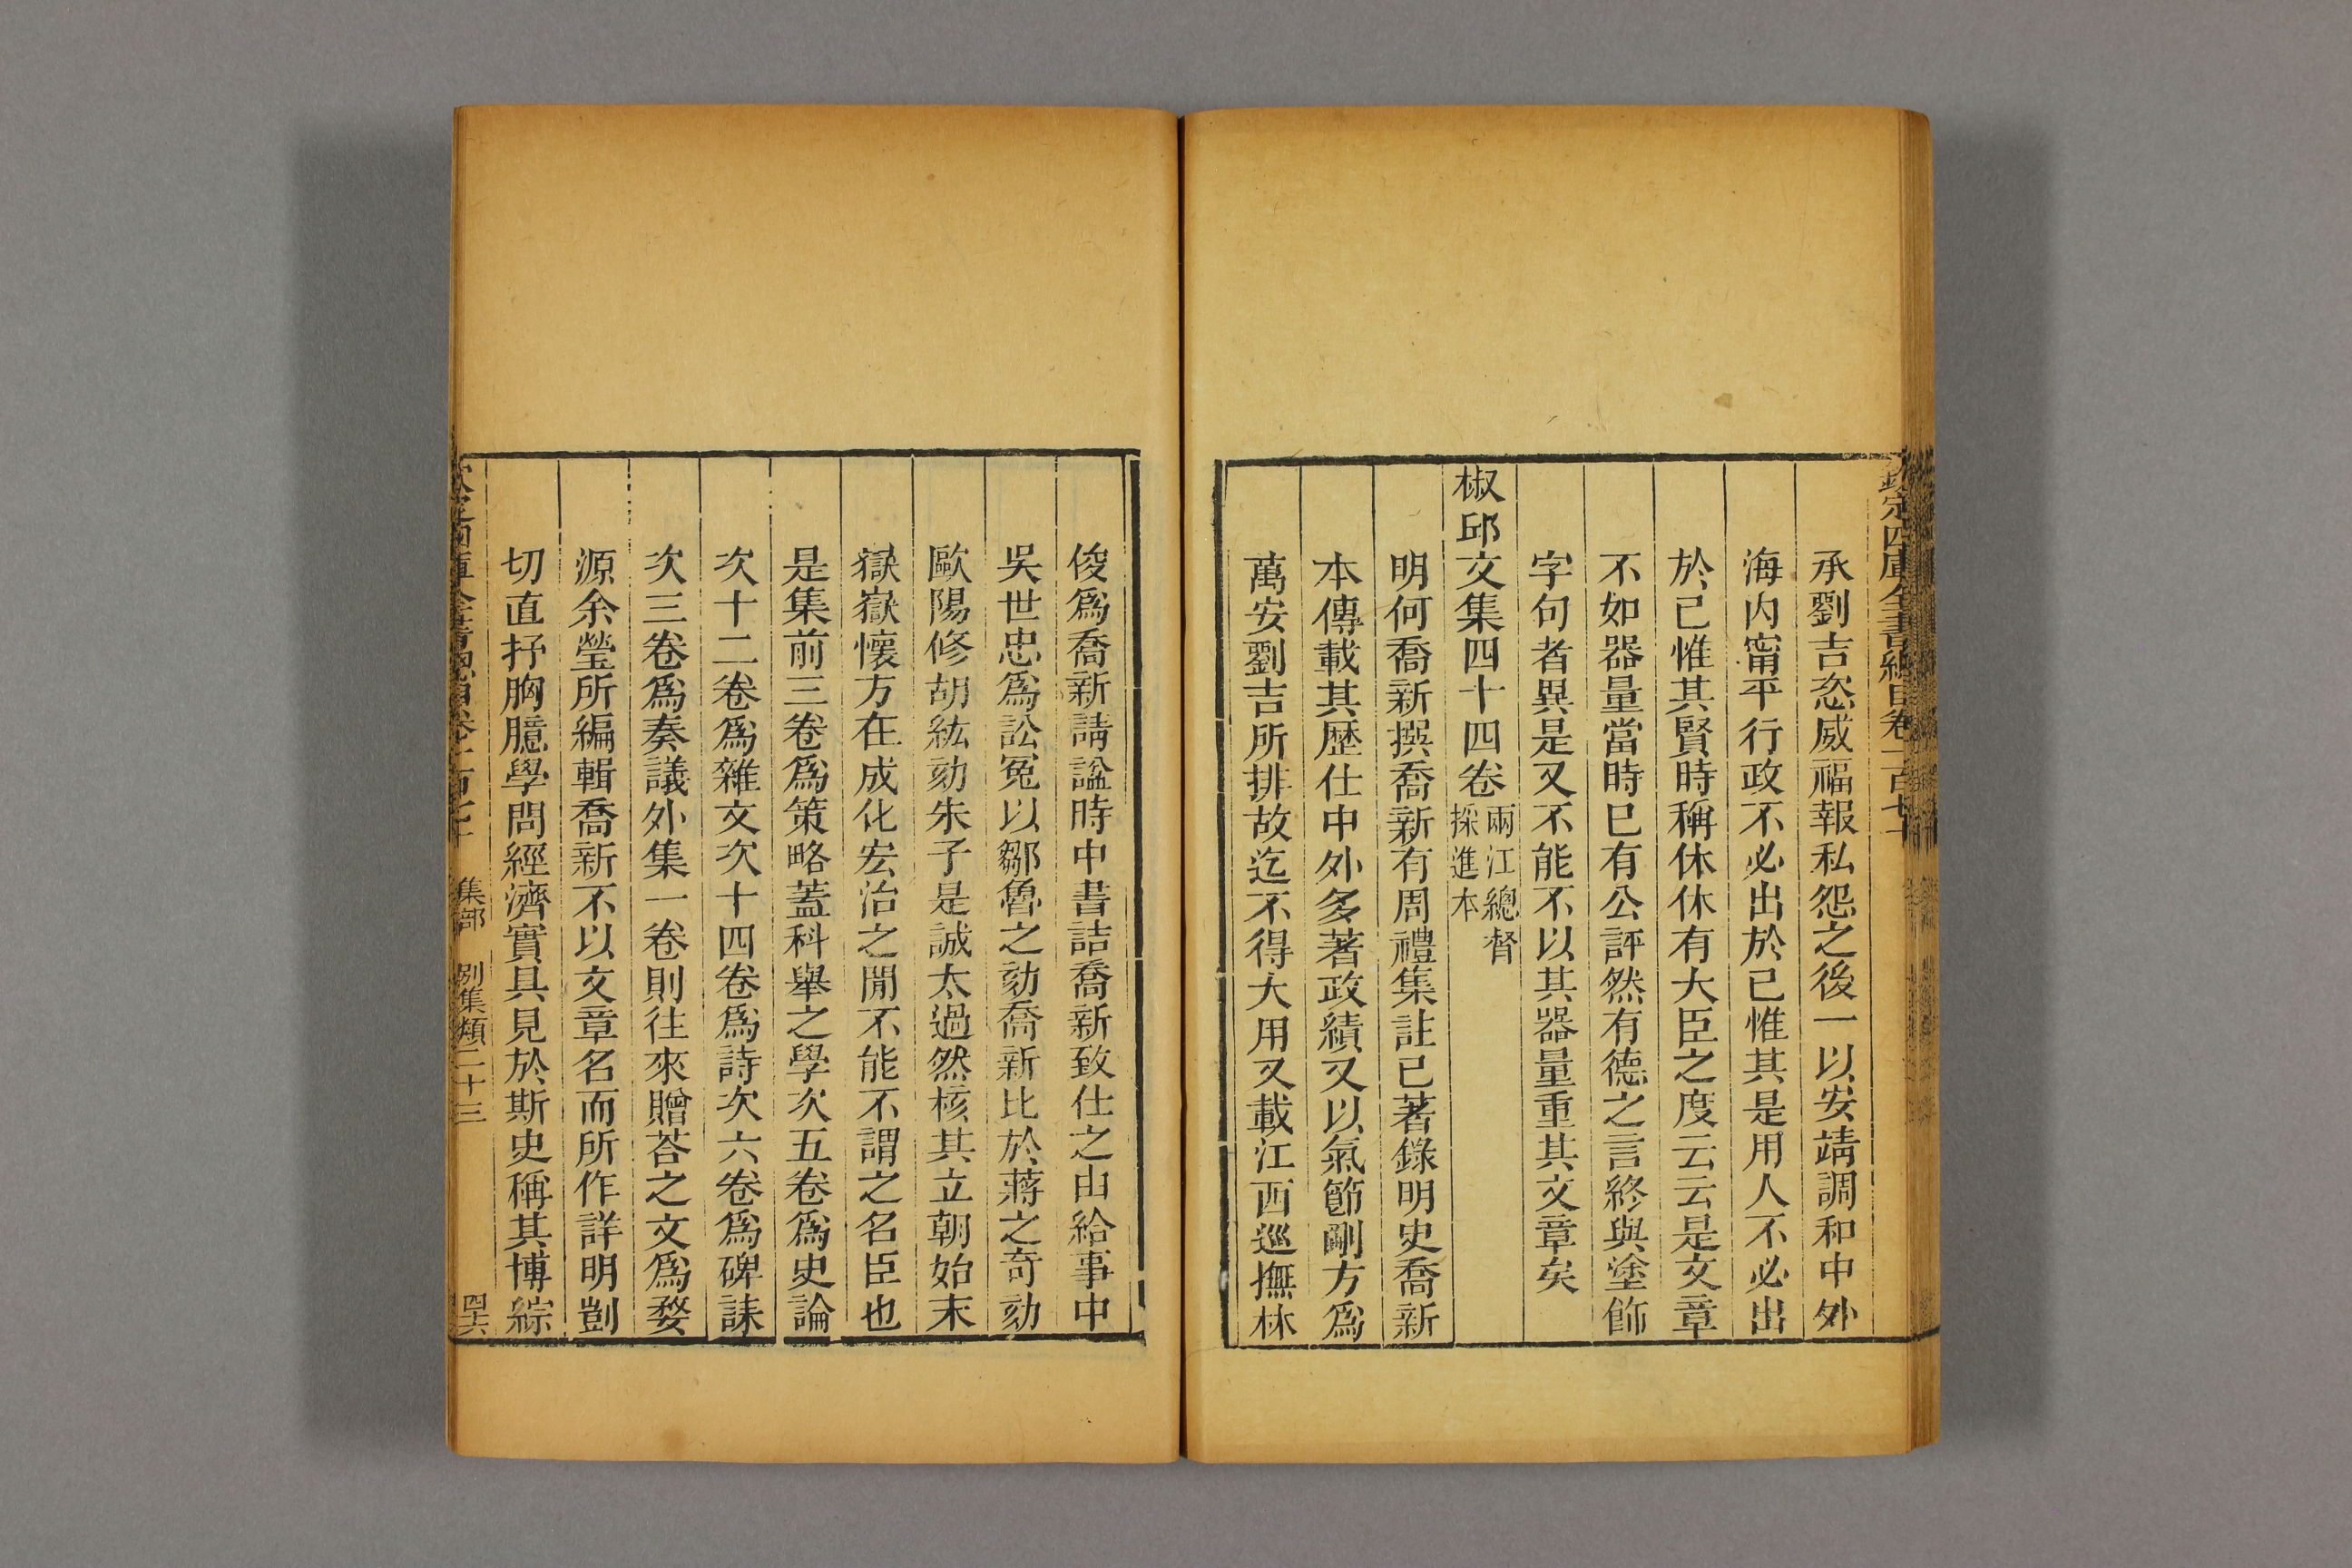 欽定四庫全書總目卷一百七十
承劉吉恣威福報私怨之後一以安靖調和中外
海内甯平行政不必出於己惟其是用人不必出
於己惟其賢時稱休休有大臣之度云云是文章
不如器量當時已有公評然有德之言終與塗飾
字句者異是又不能不以其器量重其文章矣
椒邱文集四十四卷兩江總督採進本
明何喬新撰喬新有周禮集註已著錄明史喬新
本傳載其歷仕中外多著政績又以氣節剛方爲
萬安劉吉所排故迄不得大用又載江西巡撫林
俊爲喬新請諡時中書詰喬新致仕之由給事中
吳世忠爲訟冤以鄒魯之劾喬新比於蔣之奇劾
歐陽修胡紘劾朱子是誠太過然核其立朝始末
嶽嶽懷方在成化宏治之閒不能不謂之名臣也
是集前三卷爲策略蓋科舉之學次五卷爲史論
次十二卷爲雜文次十四卷爲詩次六卷爲碑誄
次三卷爲奏議外集一卷則往來贈荅之文爲婺
源余瑩所編輯喬新不以文章名而所作詳明剴
切直抒胸臆學問經濟實具見於斯史稱其博綜
欽定四庫全書總目卷一百七十 集部 別集類二十三 四六